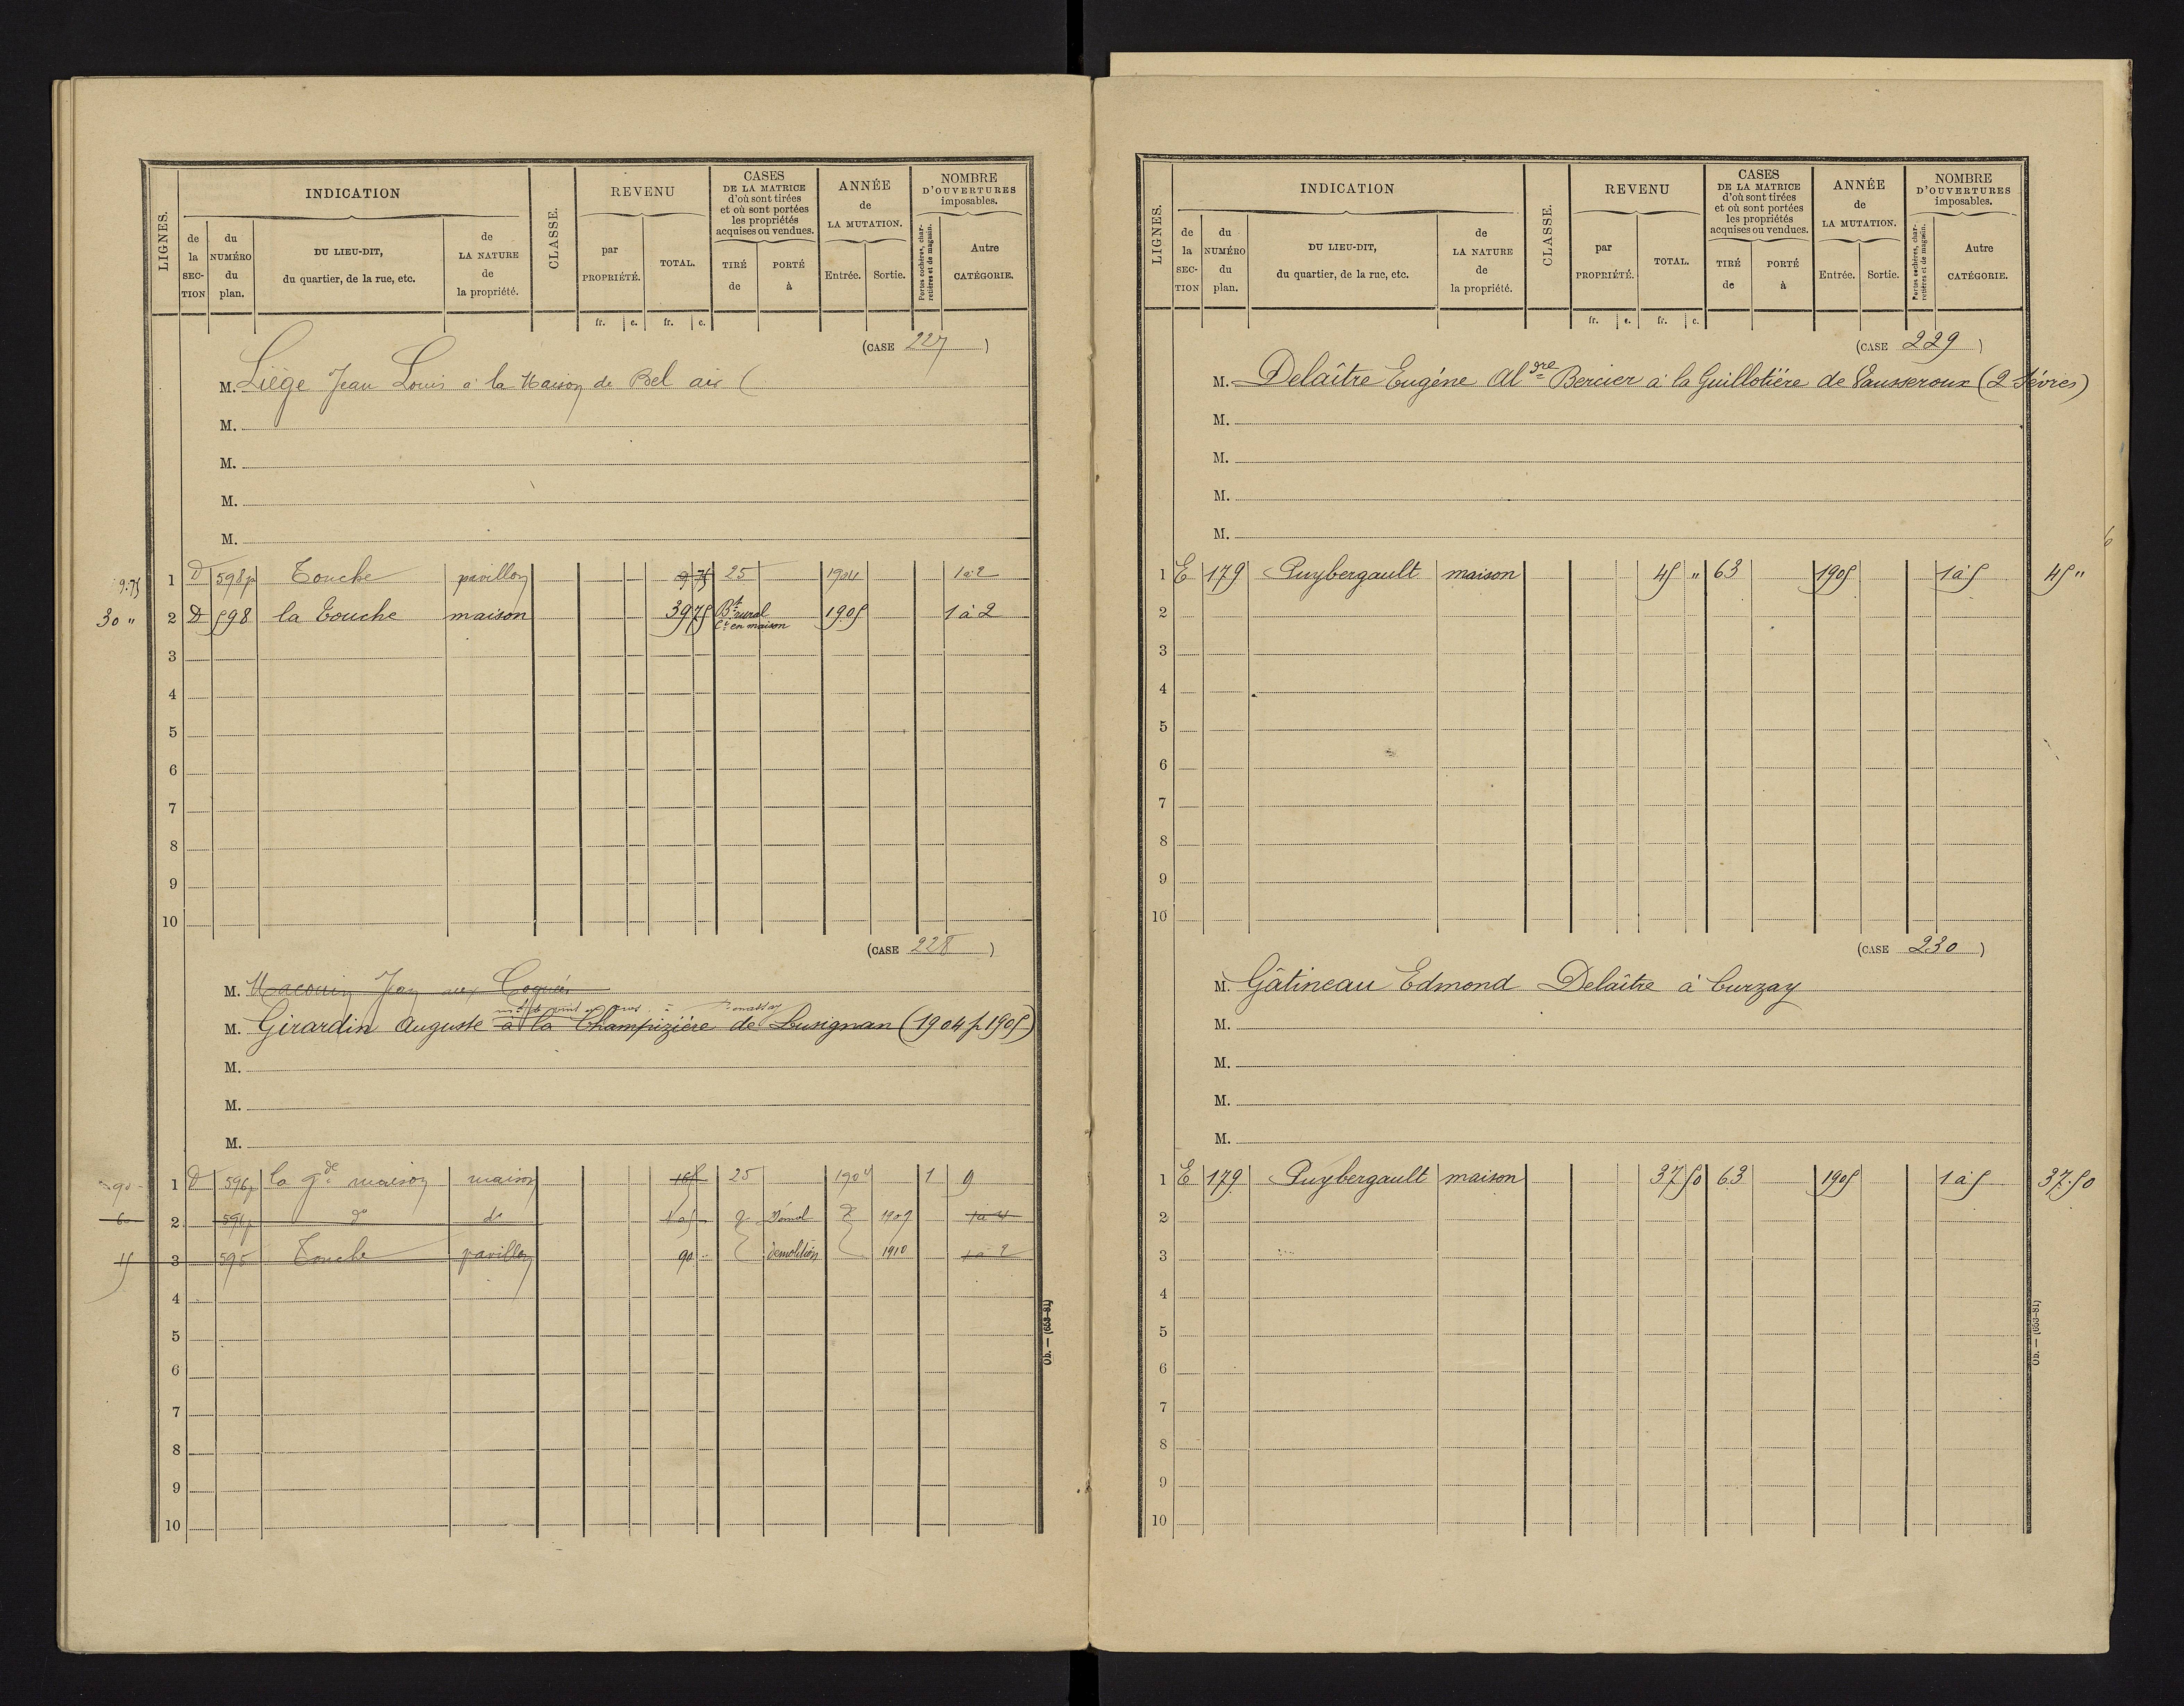 LIGNES.
INDICATION
de la SEC- TION
du NUMÉRO du plan.
DU LIEU-DIT, du quartier, de la rue, etc.
de LA NATURE de la propriété.
CLASSE.
REVENU
par PROPRIÉTÉ.
TOTAL.
fr. c. fr. c.
CASES DE LA MATRICE d'où sont tirées et où sont portées les propriétés acquises ou vendues.
TIRÉ de
PORTÉ à
ANNÉE de LA MUTATION.
Entrée. Sortie.
NOMBRE D'OUVERTURES imposables.
Portes cochères, char- retières et de magasin.
Autre CATÉGORIE.
(CASE 227)
M. Liège Jean Louis à la Maison de Bel air (
M.
M.
M.
M.
9.75 1 D 598p Touche pavillon 9 75 25 1904 1 à 2
30 " 2 D 598 la Touche maison 39 75 Bt rural Ct en maison 1905 1 à 2
3
4
5
6
7
8
9
10
(CASE 228)
M. Macouin Jean aux
M. Girardin Auguste à la Champizière de Lusignan (1904 p 1905)
M.
M.
M.
90 1 D 596p la gde maison maison 165 25 1904 1 9
60 2 596p do do Démol 1907 1 à 4
15 3 595 Touche pavillon 90 démolition 1910 1 à 2
4
5
6
7
8
9
10
Ob. — (653-81)
LIGNES.
INDICATION
de la SEC- TION
du NUMÉRO du plan.
DU LIEU-DIT, du quartier, de la rue, etc.
de LA NATURE de la propriété.
CLASSE.
REVENU
par PROPRIÉTÉ.
TOTAL.
fr. c. fr. c.
CASES DE LA MATRICE d'où sont tirées et où sont portées les propriétés acquises ou vendues.
TIRÉ de
PORTÉ à
ANNÉE de LA MUTATION.
Entrée. Sortie.
NOMBRE D'OUVERTURES imposables.
Portes cochères, char- retières et de magasin.
Autre CATÉGORIE.
(CASE 229)
M. Delaître Eugène Aldre Bercier à la Guillotière de Vausseroux (2 Sèvres)
M.
M.
M.
M.
1 E 179 Puybergault maison 45 " 63 1905 1 à 5 45 "
2
3
4
5
6
7
8
9
10
(CASE 230)
M. Gâtineau Edmond Delaître à Curzay
M.
M.
M.
M.
1 E 179 Puybergault maison 37 50 63 1905 1 à 5 37.50
2
3
4
5
6
7
8
9
10
Ob. — (653-81)